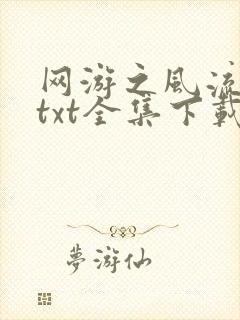 网游之风流
txt全集下載
夢游仙